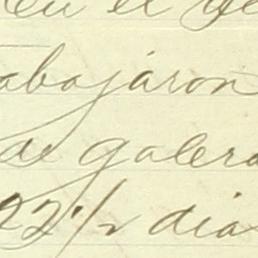 en el de
abajaron
de galera
22 1/2 dia